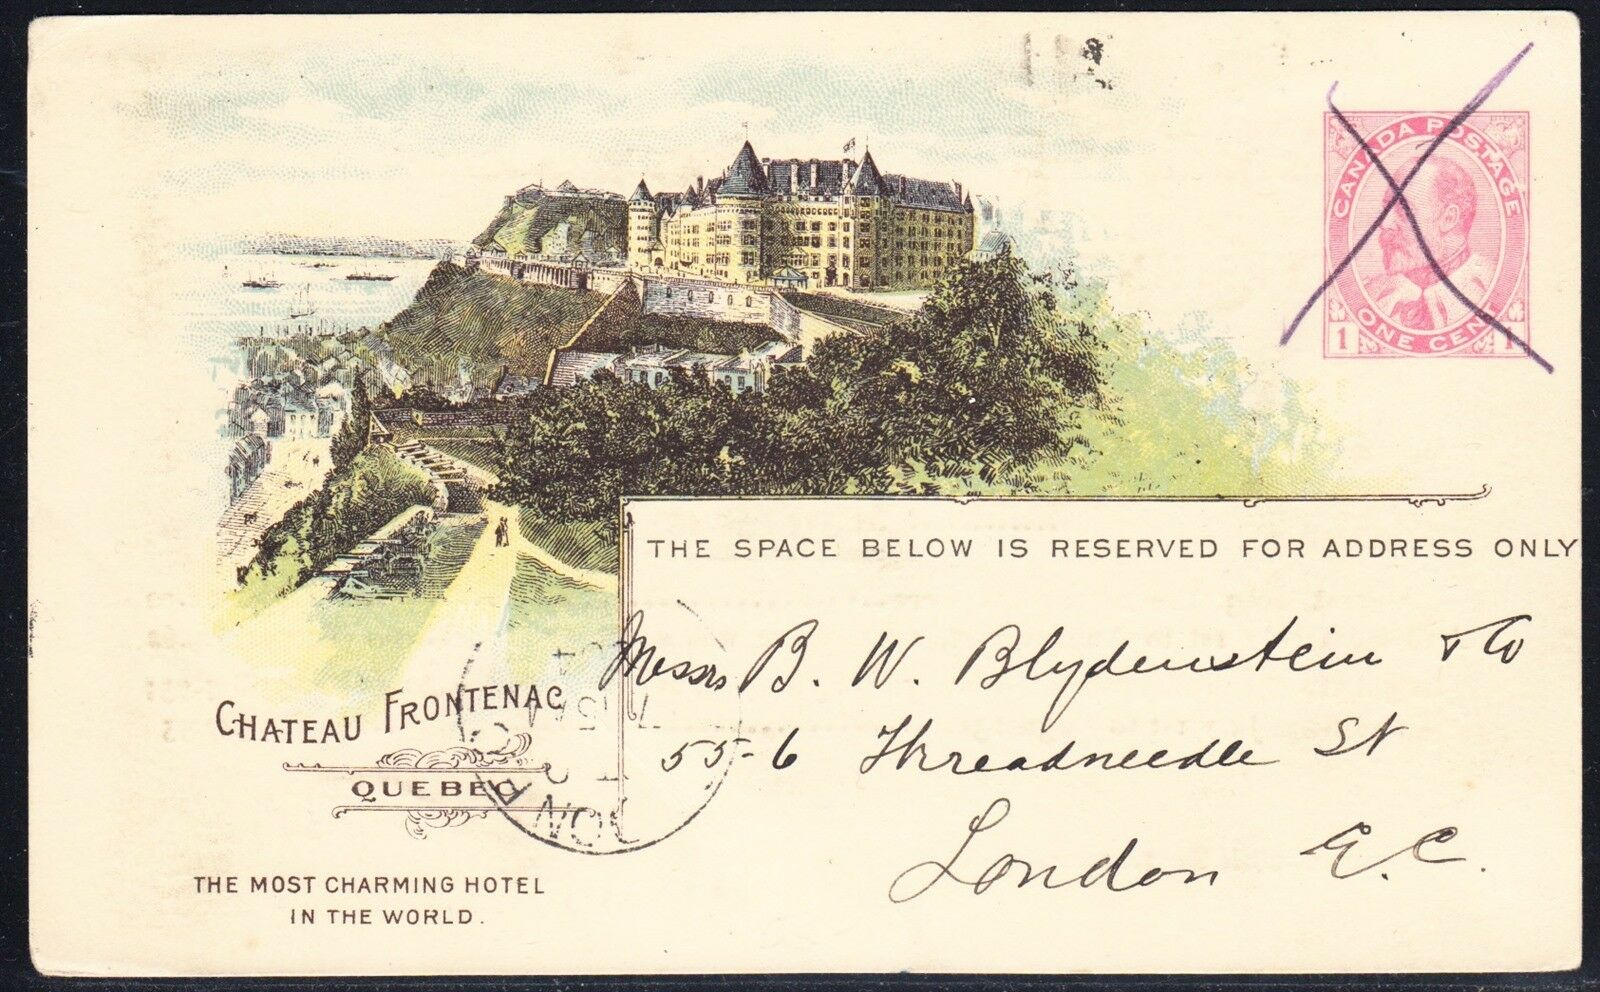 CANADA POSTAGE
1 ONE CENT 1
THE SPACE BELOW IS RESERVED FOR ADDRESS ONLY
Messrs B. W. Blydenstein & Co
55-6 Threadneedle St
London E.C.
CHATEAU FRONTENAC
QUEBEC
THE MOST CHARMING HOTEL
IN THE WORLD.